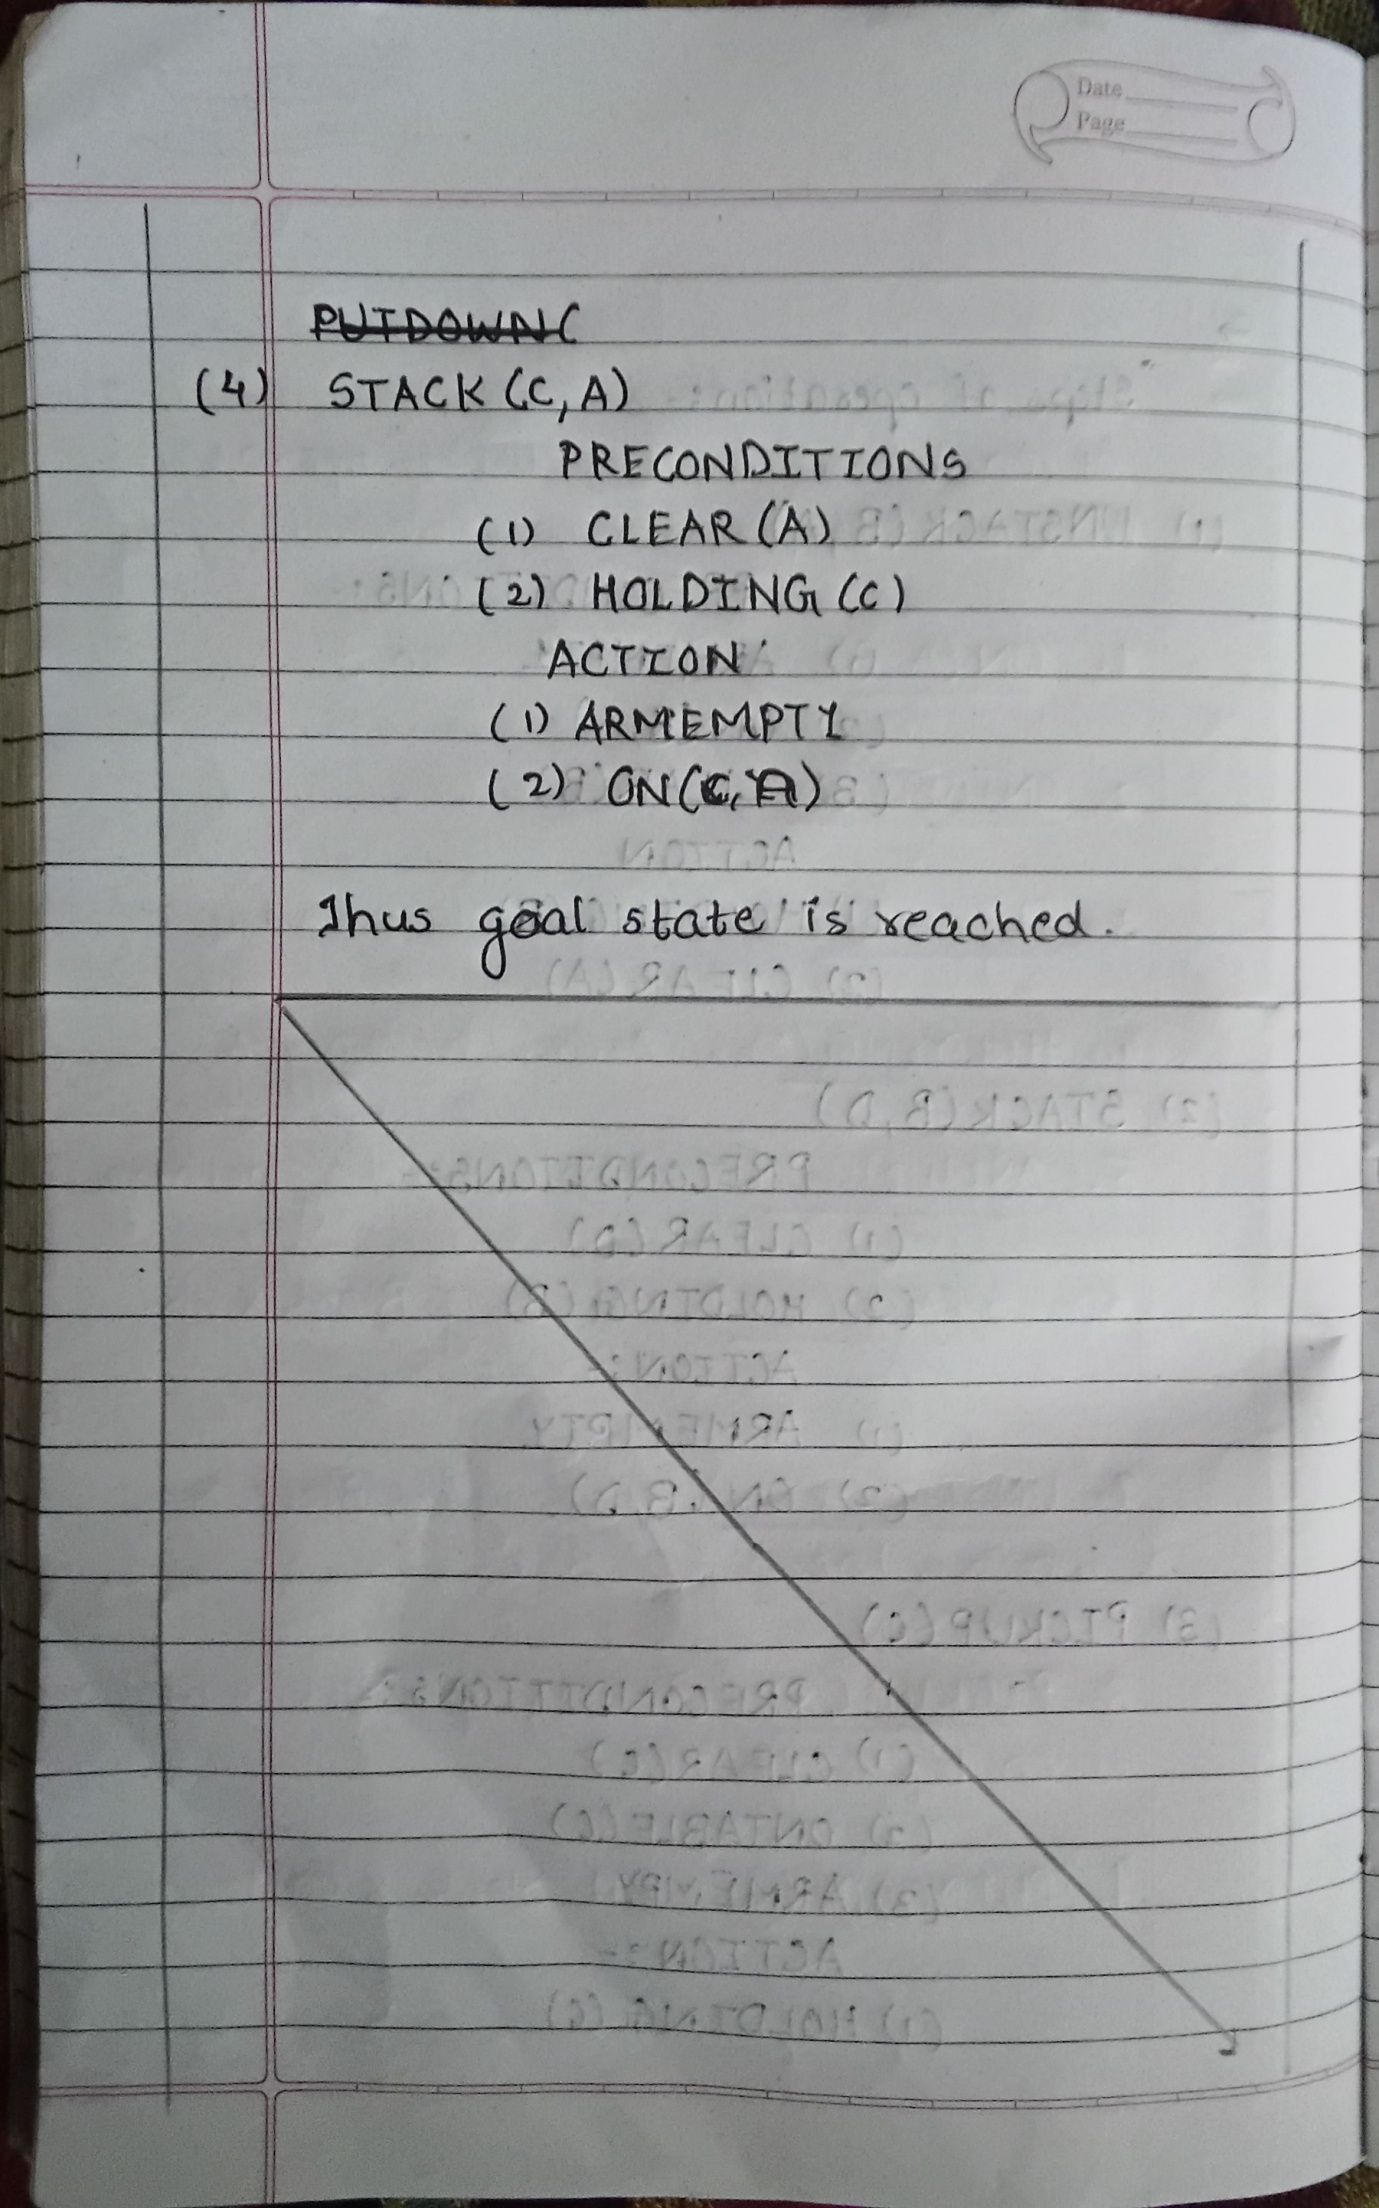 Date
Page
PUTDOWN(
(4) STACK (C, A)
PRECONDITIONS
(1) CLEAR (A)
(2) HOLDING (C)
ACTION
(1) ARMEMPTY
(2) ON(C, A)
Thus goal state is reached.